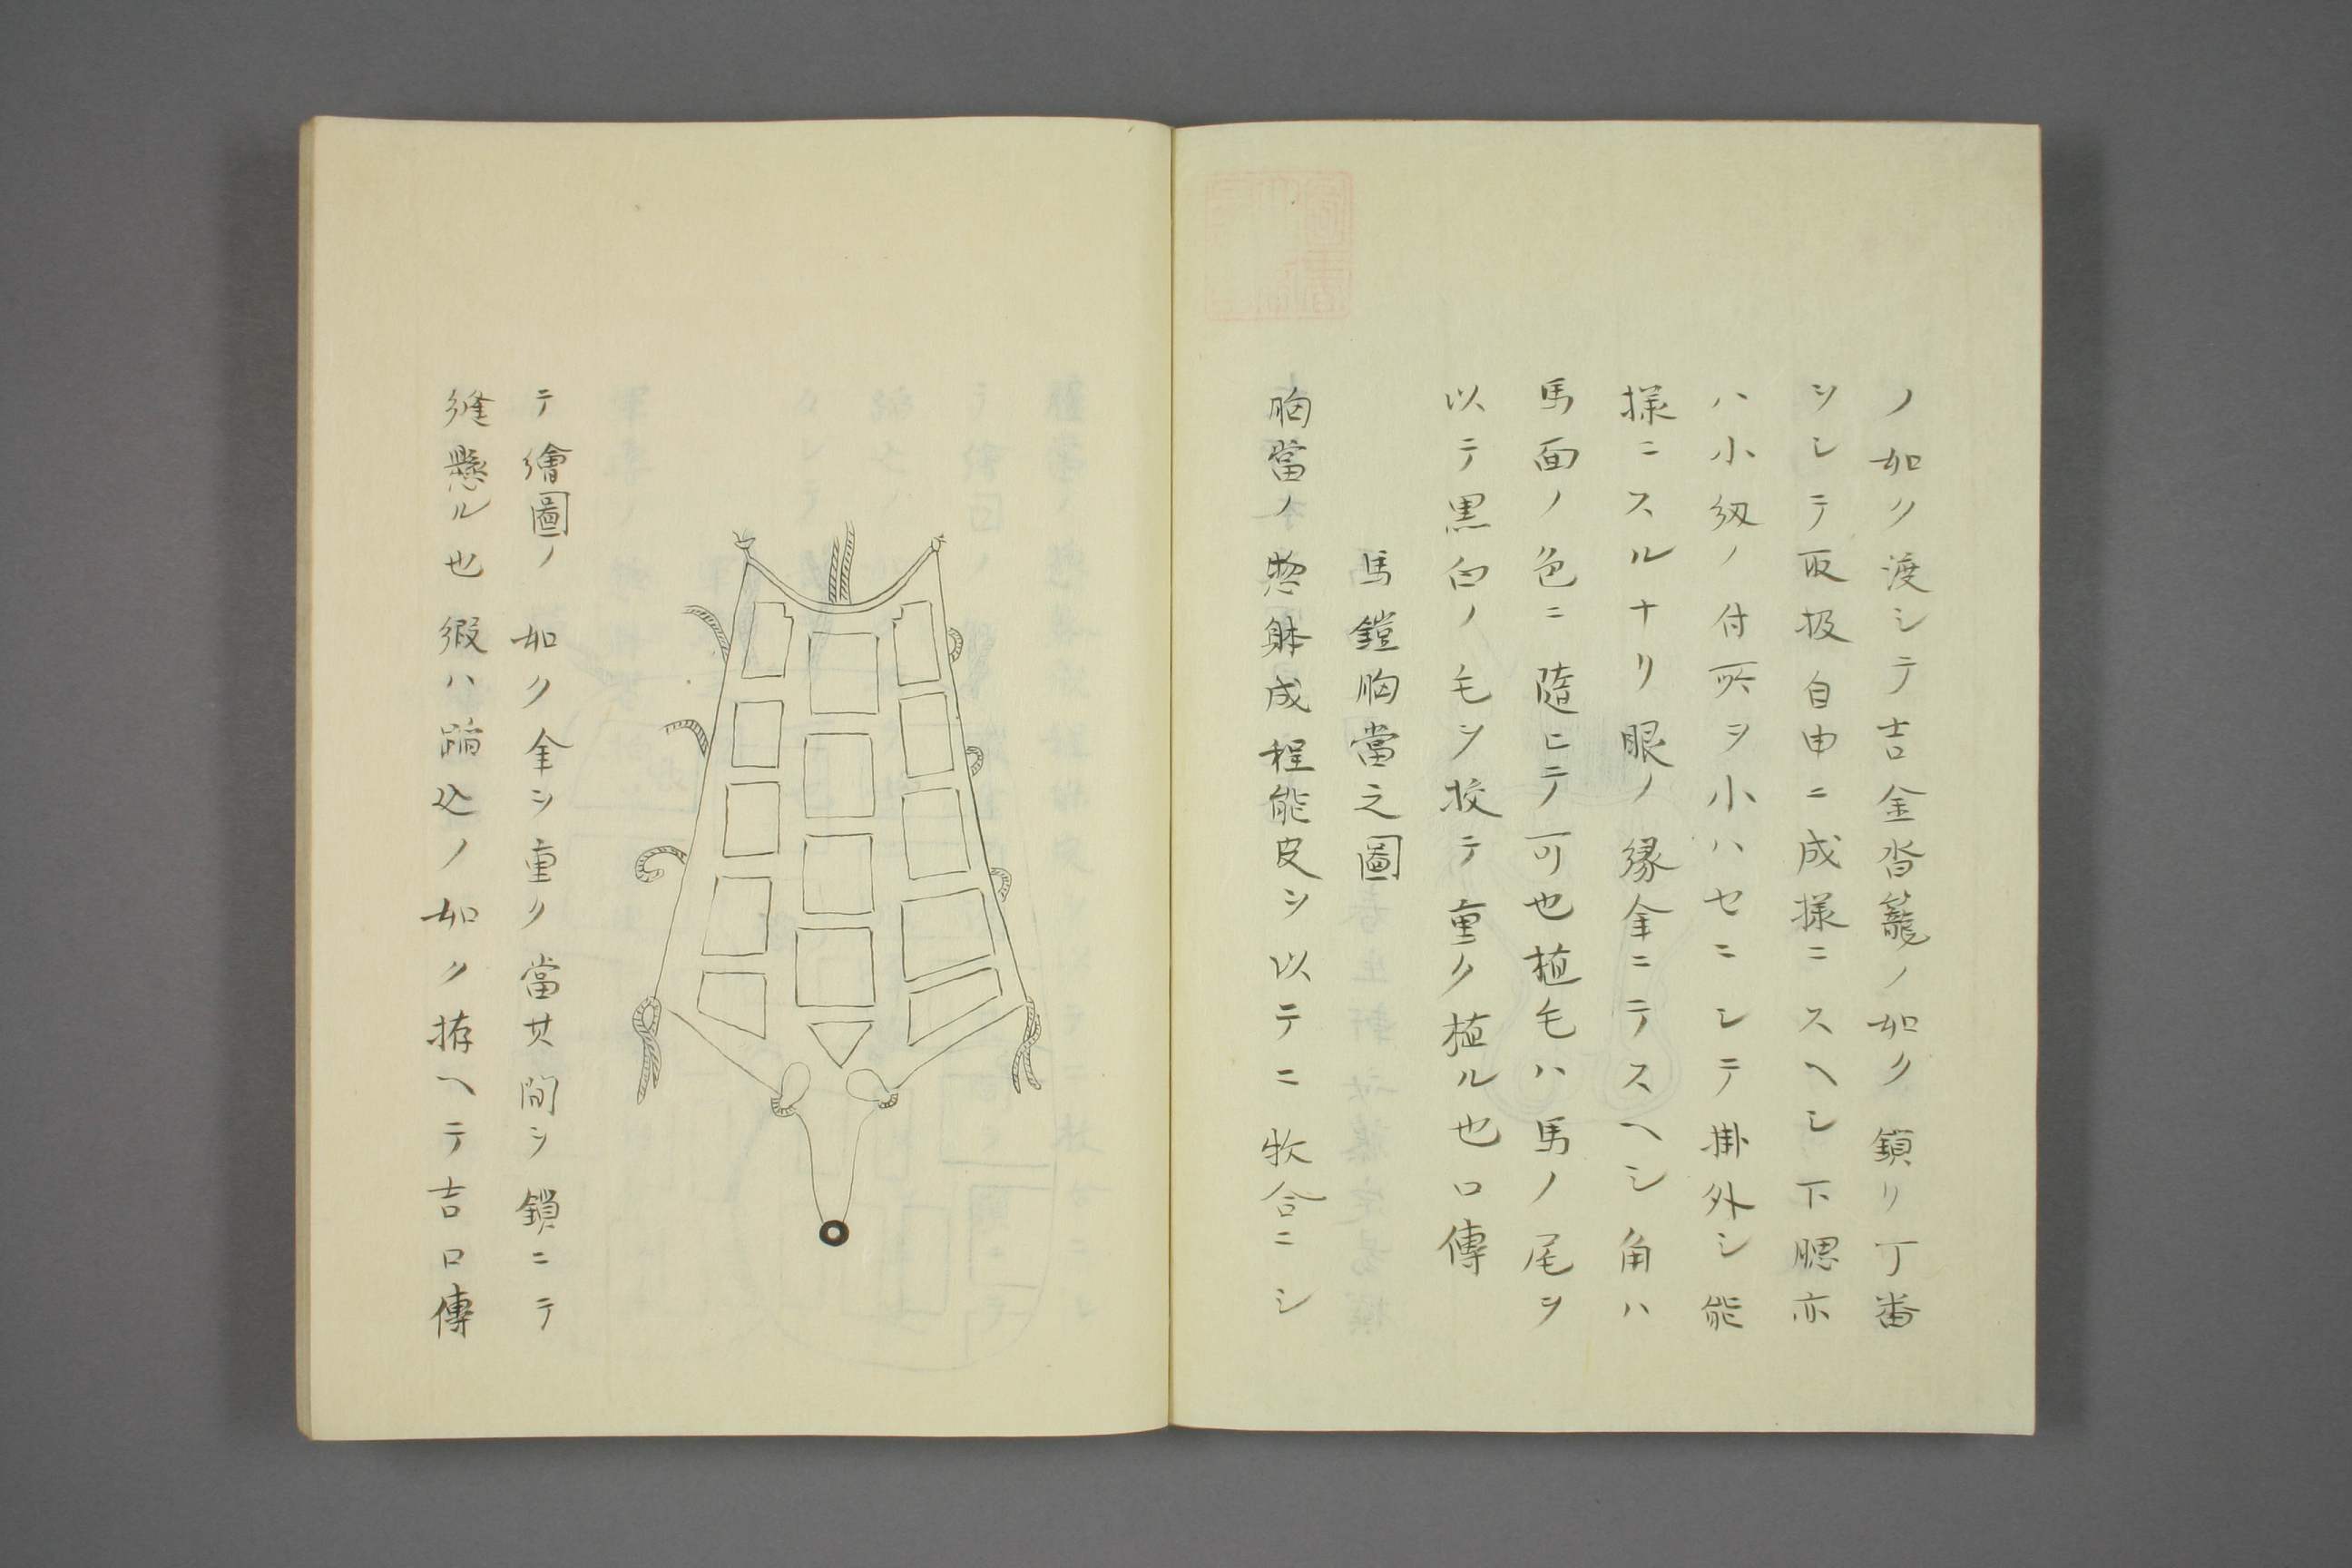 ノ如ク渡シテ吉金沓籠ノ如ク鎖リ丁番
ヲシテ取扱自由ニ成様ニスヘシ下腮亦
ハ小紐ノ付所ヲ小ハセニシテ掛外シ能
様ニスルナリ眼ノ縁金ニテスヘシ角ハ
馬面ノ色ニ隨ヒテ可也植毛ハ馬ノ尾ヲ
以テ黒白ノ毛ヲ挍テ重ク植ル也口傳
馬鎧胸當之圖
胸當ノ惣躰成程能皮ヲ以テ二枚合ニシ
テ繪圖ノ如ク金ヲ重ク當其間ヲ鎖ニテ
縫懸ル也緞ハ踏込ノ如ク拵ヘテ吉口傳